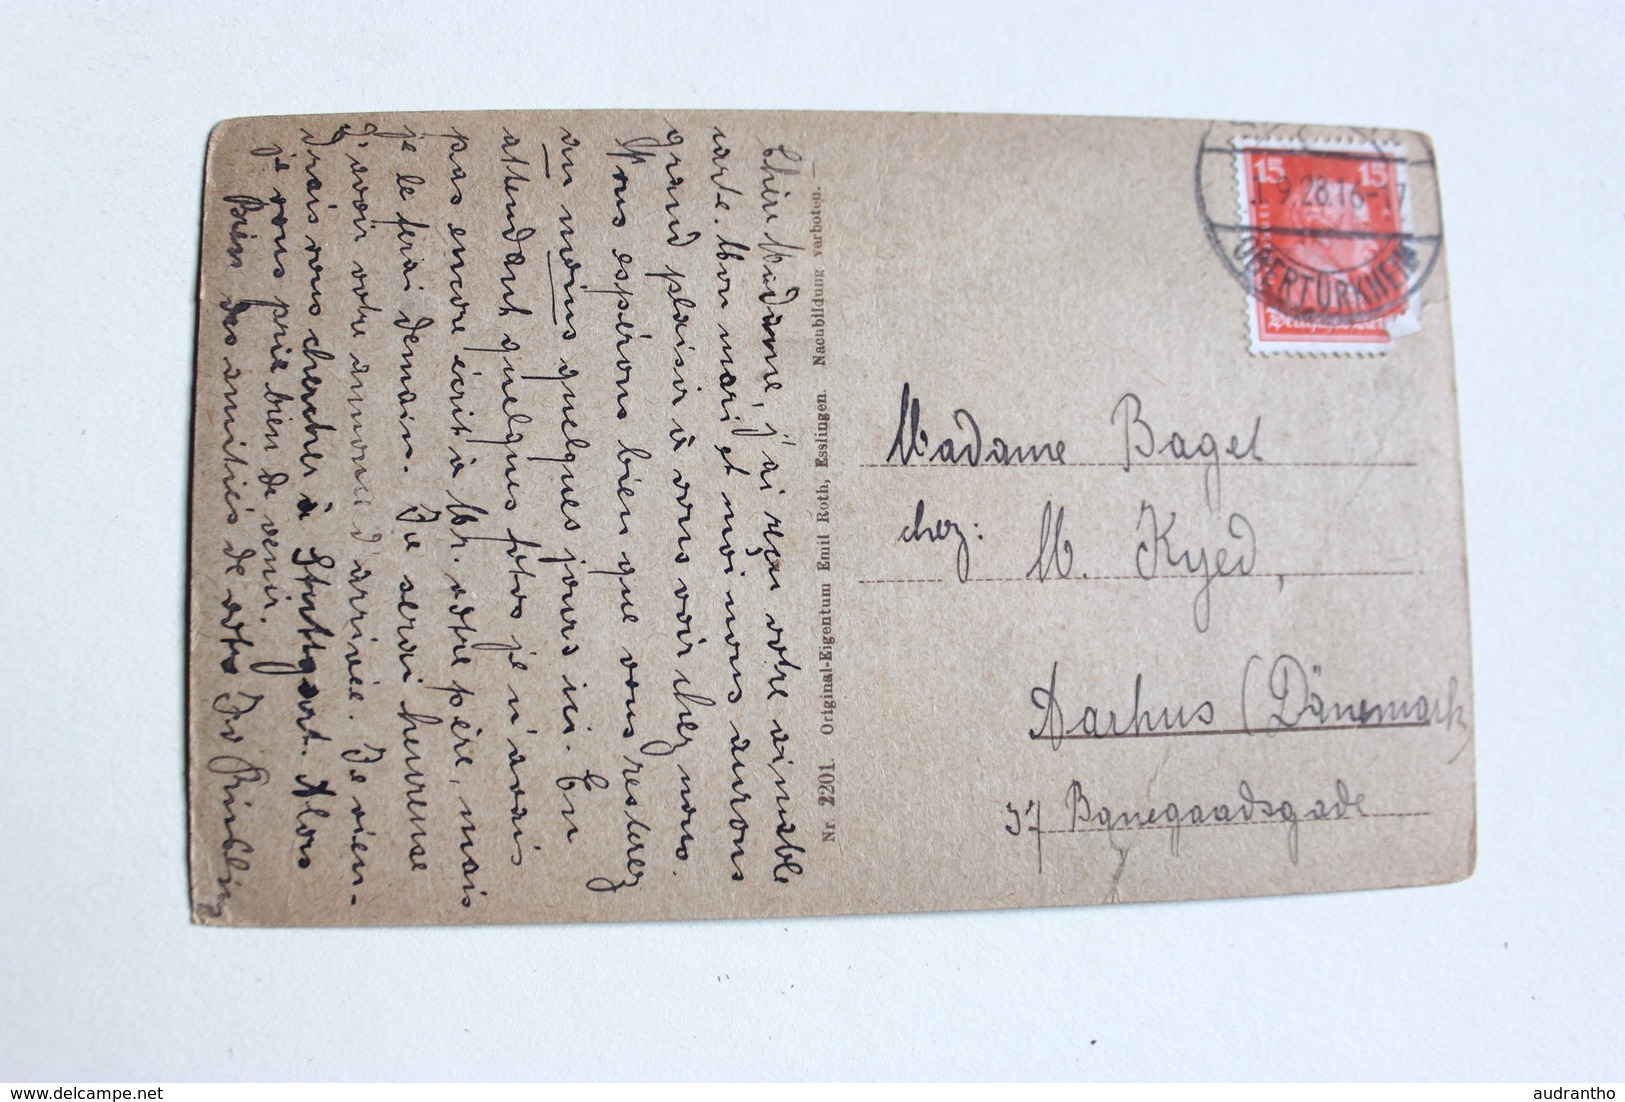 Chère Madame, j'ai reçu votre aimable
carte. Mon mari et moi nous aurons
grand plaisir à vous voir chez nous.
Nous espérons bien que vous resterez
au moins quelques jours ici. En
attendant quelques fotos je n'avais
pas encore écrit à Mr. votre père, mais
je le ferai demain. Je serai heureuse
d'avoir votre annonce d'arrivée. Je vien-
drais vous chercher à Stuttgart. Alors
je vous prie bien de venir.
Bien des amitiés de votre
Nr. 2201. Original-Eigentum Emil Roth, Esslingen. Nachbildung verboten.
15 15
1.9.28.16-17
OBERTÜRKHEIM
Deutsches Reich
Madame Bagel
chez: M. Kjed,
Aarhus (Dänemark)
37 Banegaadsgade
delcampe.net
audrantho